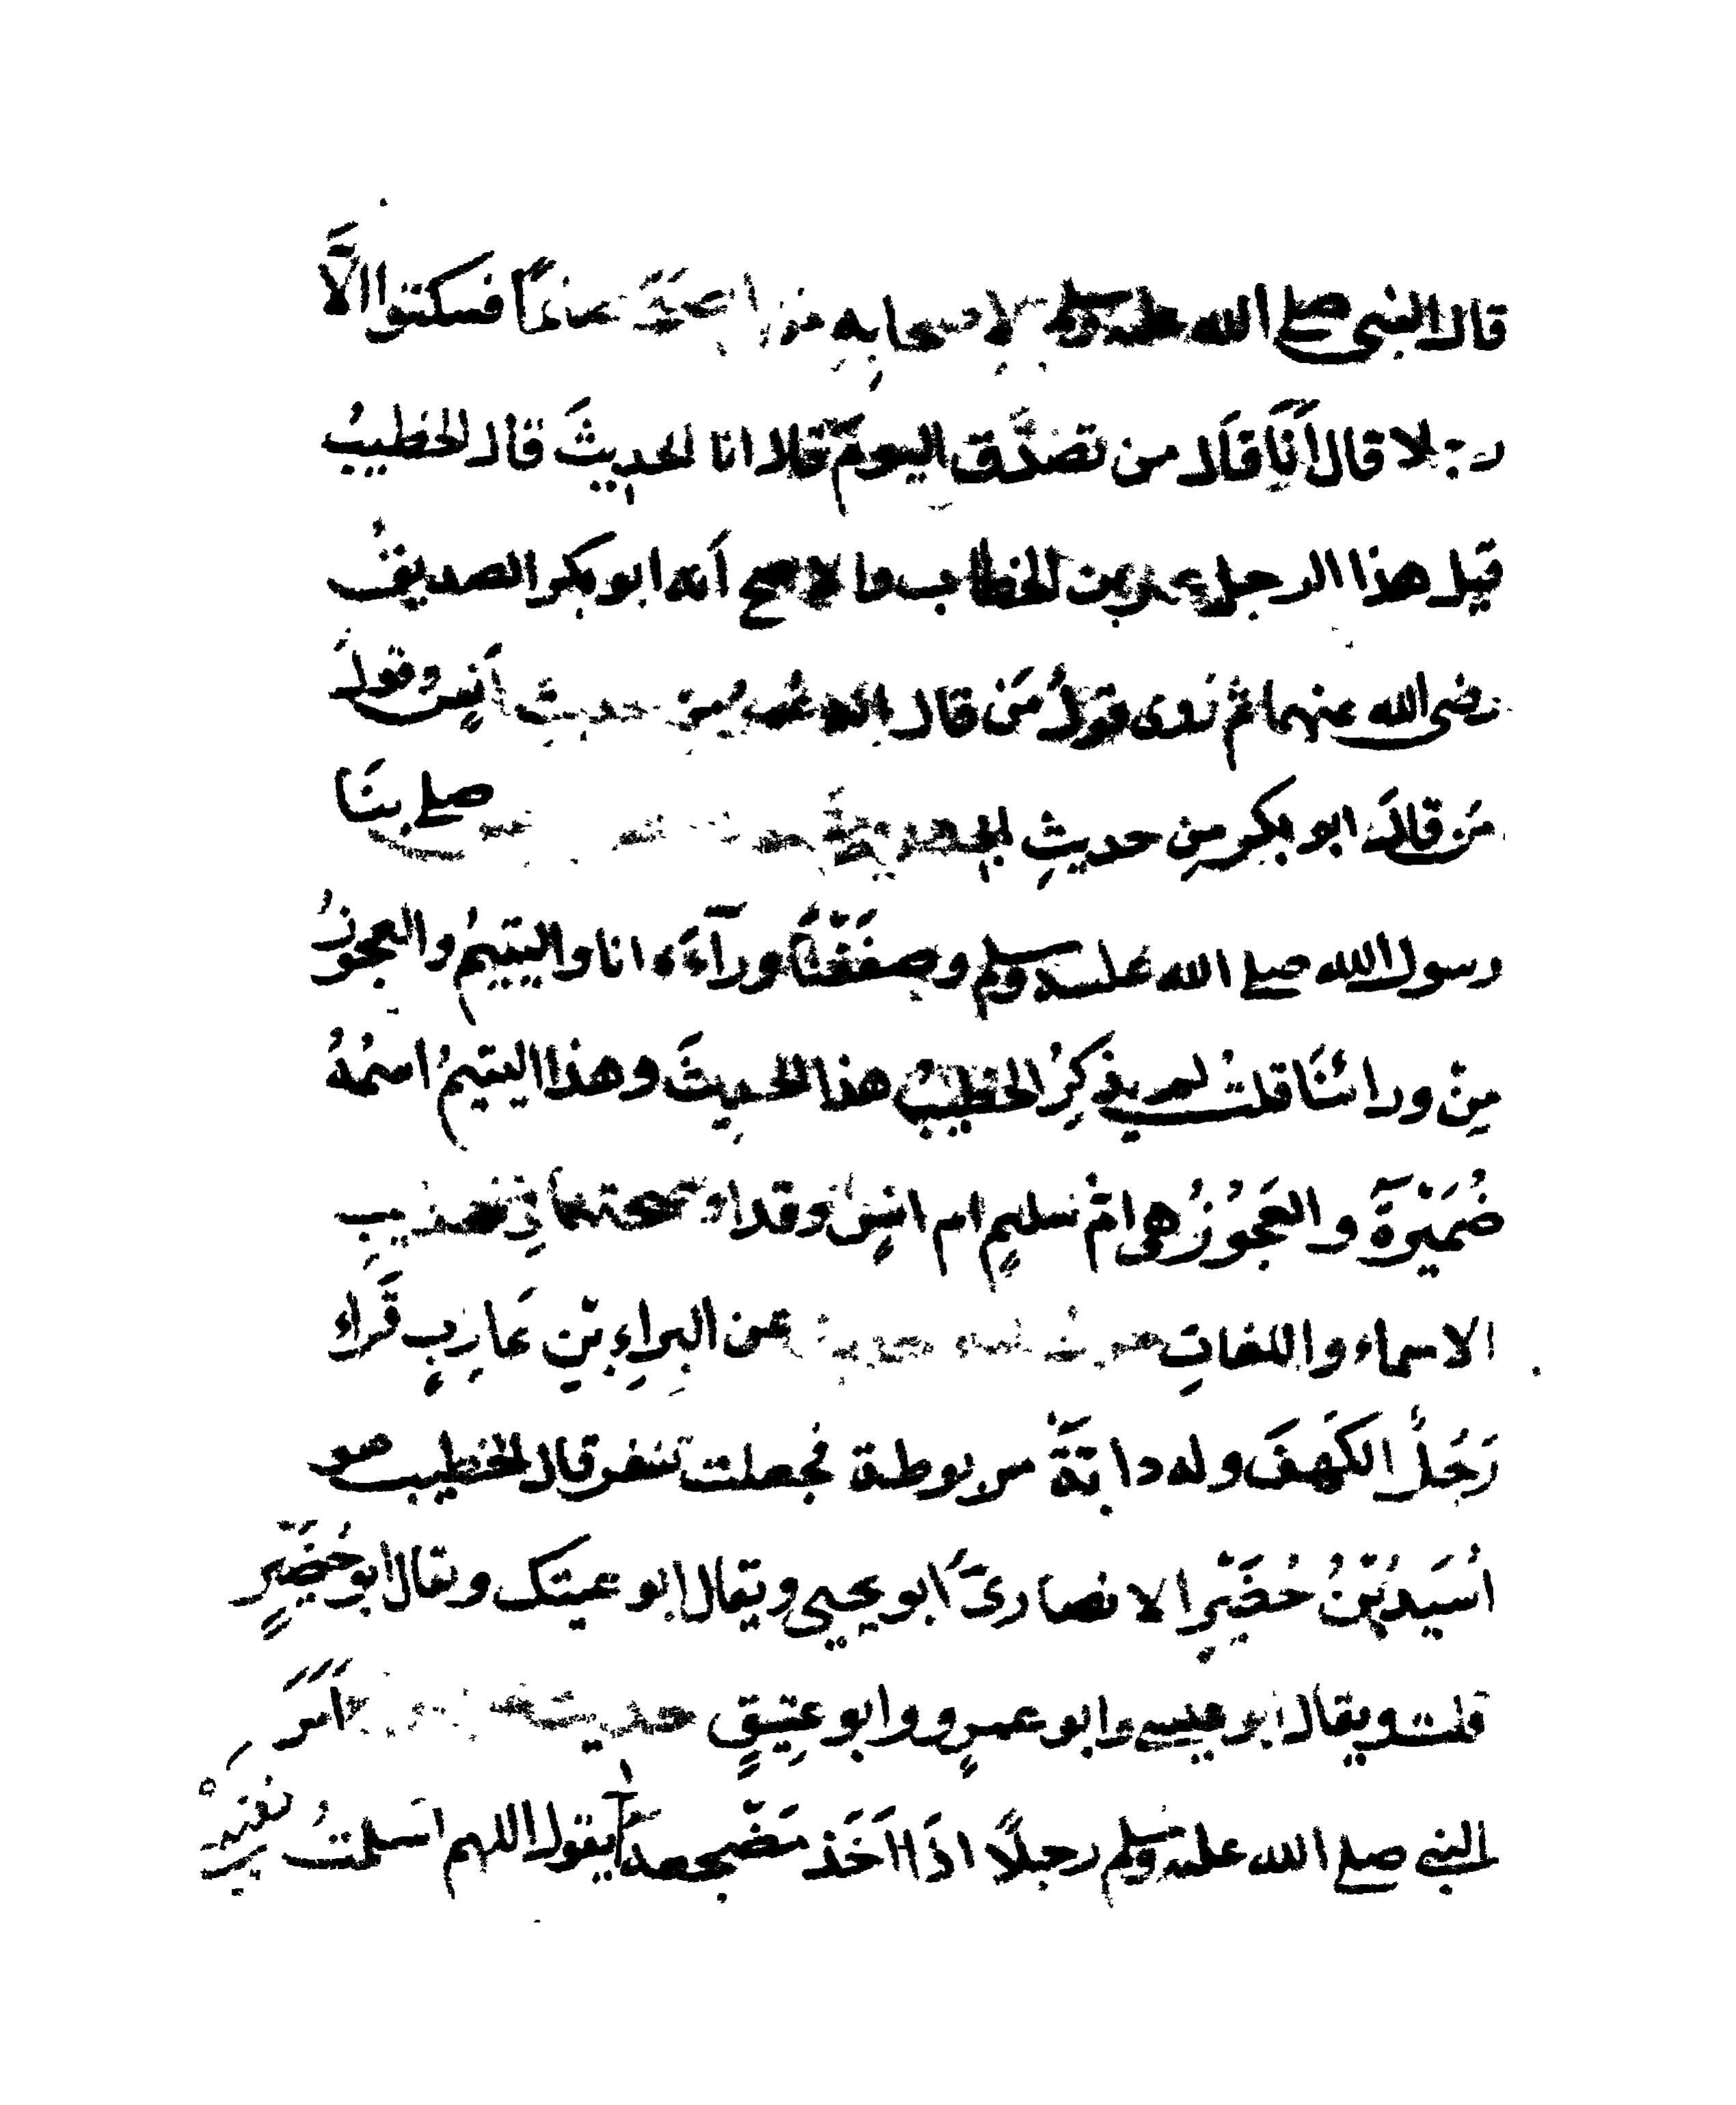 قال النبي صلى الله عليه وسلم لاصحابه من اصبح صائماً فسكتوا الَّا
رجلا قال أَنَا قَال من تصدَّق اليومَ قال انا الحديثَ قال الخطيبُ
قيل هذا الرجل عمر بن الخطاب والاصح أنه ابو بكر الصديق
رضي الله عنهما ثم روى قولَ مَن قال انه عمر مِن حديثِ أنسٍ وقولَ
مَن قالَ ابو بكر مِن حديثِ صلى بنَا
رسول الله صلى الله عليه وسلم وصفَفْنَا ورآءَه انا واليتيمُ والعجوزُ
مِنْ ورائنَا قلتُ لم يذكرِ الخطيبُ هذا الحديثَ وهذا اليتيمُ اسمُهُ
ضُمَيْرَةُ والعَجُوزُ هي امُّ سليمٍ ام انسٍ وقد اوضحتهما في تهذيبِ
الاسماء واللغاتِ عن البراءِ بْنِ عَازِبٍ قَراءَ
رَجُلٌ الكَهفَ وله دابَّةٌ مربوطة فجعلت تنفر قال الخطيب هو
أُسَيدُ بْنُ حُضَيْرٍ الانصاريُّ ابو يحيى ويقال ابو عتيك ويقال ابو حُضَيْرٍ
قلت ويقال ابو عيسى وابو عمرٍو وابو عتِيقٍ حديث أَمَرَ
النبي صلى الله عليه وسلم رجلًا اذَا اَخَذ مَضْجعهَ ان يقول اللهم اسلمتُ نفسِيْ